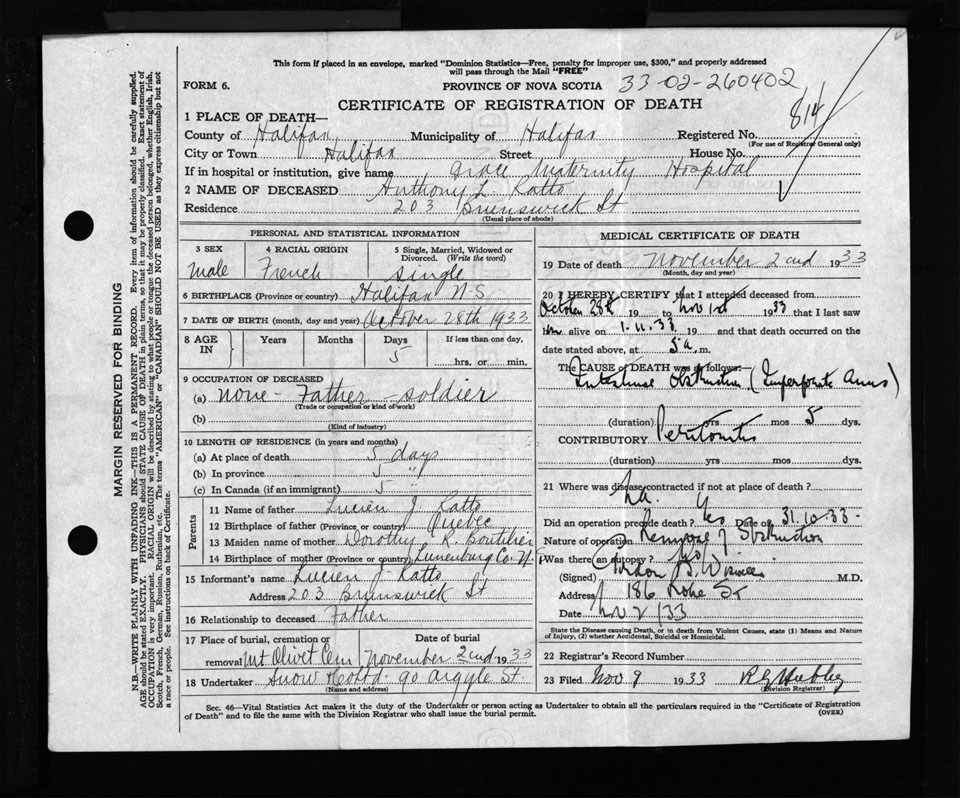 This form if placed in an envelope, marked "Dominion Statistics—Free, penalty for improper use, $300," and properly addressed
will pass through the Mail "FREE"
FORM 6.
PROVINCE OF NOVA SCOTIA 33-02-260402
CERTIFICATE OF REGISTRATION OF DEATH
814
1 PLACE OF DEATH—
County of Halifax Municipality of Halifax Registered No.
(For use of Registrar General only)
City or Town Halifax Street House No.
If in hospital or institution, give name Grace Maternity Hospital
2 NAME OF DECEASED Anthony L. Ratto
Residence 203 Brunswick St
(Usual place of abode)
PERSONAL AND STATISTICAL INFORMATION
3 SEX
male
4 RACIAL ORIGIN
French
5 Single, Married, Widowed or Divorced. (Write the word)
single
6 BIRTHPLACE (Province or country) Halifax N.S.
7 DATE OF BIRTH (month, day and year) October 28th 1933
8 AGE IN
Years Months Days If less than one day,
5 hrs. or min.
9 OCCUPATION OF DECEASED
(a) none - Father - soldier
(Trade or occupation or kind of work)
(b)
(Kind of industry)
10 LENGTH OF RESIDENCE (in years and months)
(a) At place of death 5 days
(b) In province 5 "
(c) In Canada (if an immigrant) 5 "
Parents
11 Name of father Lucien J Ratto
12 Birthplace of father (Province or country) Quebec
13 Maiden name of mother Dorothy R. Boutilier
14 Birthplace of mother (Province or country) Lunenburg Co. N.S
15 Informant's name Lucien J. Ratto
Address 203 Brunswick St
16 Relationship to deceased Father
17 Place of burial, cremation or Date of burial
removal Mt Olivet Cem November 2nd 1933
18 Undertaker Snow & Co Ltd. 90 Argyle St.
(Name and address)
MEDICAL CERTIFICATE OF DEATH
19 Date of death November 2nd 1933
(Month, day and year)
20 I HEREBY CERTIFY that I attended deceased from
October 28th 19 to Nov 1st 1933 that I last saw
him alive on 1.11.33 19 and that death occurred on
date stated above, at 5 a. m.
The CAUSE OF DEATH was as follows:
Intestinal Obstruction (Imperforate Anus)
(duration) yrs mos 5 dys.
CONTRIBUTORY Peritonitis
(duration) yrs mos dys.
21 Where was disease contracted if not at place of death?
Did an operation precede death? Yes Date of 31.10.33.
Nature of operation Removal of Obstruction
Was there an autopsy? No
(Signed) M.D.
Address 186 St
Date Nov 2/33
State the Disease causing Death, or in death from Violent Causes, state (1) Means and Nature
of Injury, (2) whether Accidental, Suicidal or Homicidal.
22 Registrar's Record Number
23 Filed Nov 9 1933 R G Hubley
(Division Registrar)
Sec. 46—Vital Statistics Act makes it the duty of the Undertaker or person acting as Undertaker to obtain all the particulars required in the "Certificate of Registration
of Death" and to file the same with the Division Registrar who shall issue the burial permit. (OVER)
MARGIN RESERVED FOR BINDING
N.B.—WRITE PLAINLY WITH UNFADING INK—THIS IS A PERMANENT RECORD. Every item of information should be carefully supplied.
AGE should be stated EXACTLY. PHYSICIANS should STATE CAUSE OF DEATH in plain terms, so that it may be properly classified. Exact statement of
OCCUPATION is very important. RACIAL ORIGIN will be described by stating to what people or tongue the deceased person belonged, whether English, Irish,
Scotch, French, German, Russian, Ruthenian, etc. The terms "AMERICAN" or "CANADIAN" SHOULD NOT BE USED as they express citizenship but not
a race or people. See instructions on back of Certificate.